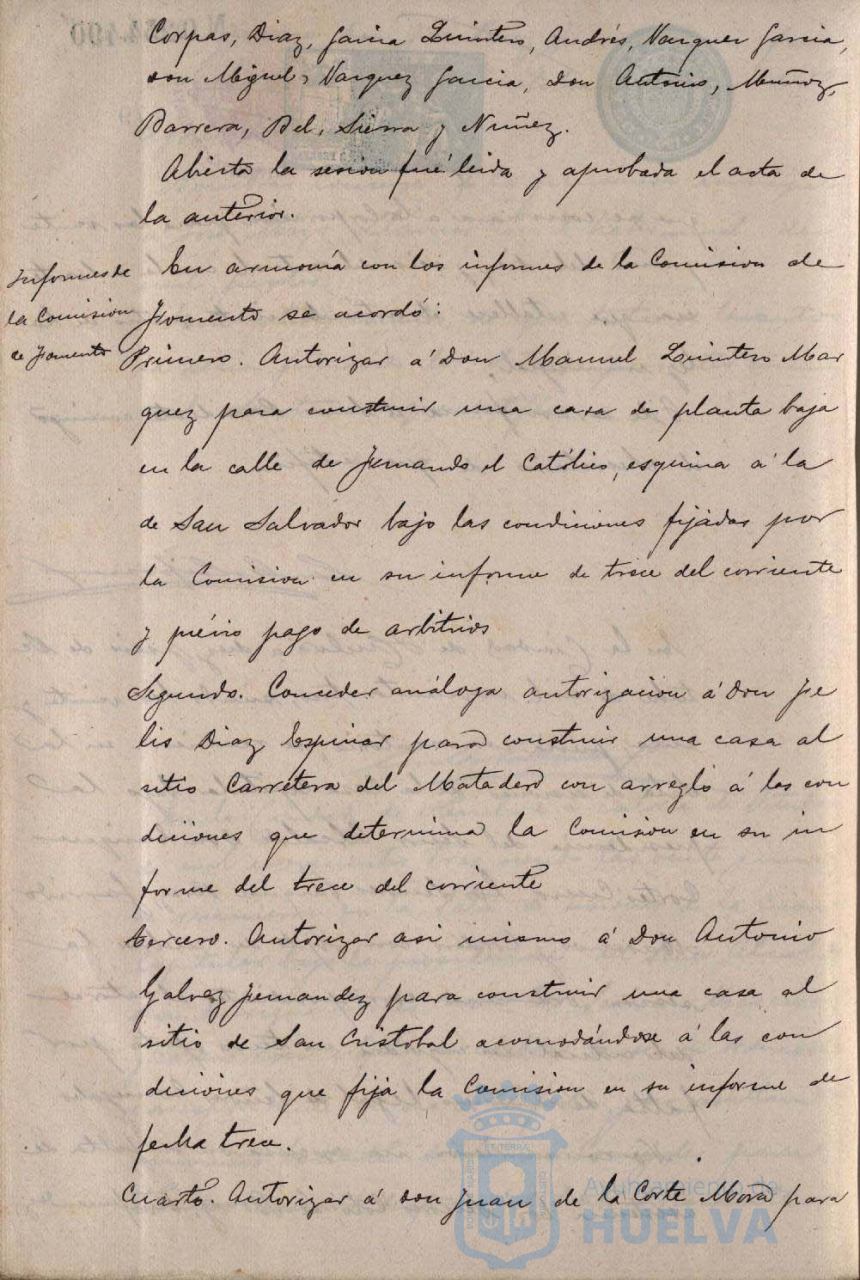 Corpas, Diaz, Garcia Quintero, Andrés, Vazquez Garcia,
don Miguel, Vazquez Garcia, Don Antonio, Muñoz,
Barrera, Bel, Sierra y Nuñez.
Abierta la sesion fué leida y aprobada el acta de
la anterior.
Informes de
la Comision
de Fomento
En armonía con los informes de la Comision de
Fomento se acordó:
Primero. Autorizar á Don Manuel Quintero Mar
quez para construir una casa de planta baja
en la calle de Fernando el Católico, esquina á la
de San Salvador bajo las condiciones fijadas por
la Comision en su informe de trece del corriente
y prévio pago de arbitrios
Segundo. Conceder análoga autorizacion á Don Fe
lis Diaz Espinar para construir una casa al
sitio Carretera del Matadero con arreglo á las con
diciones que determina la Comision en su in
forme del trece del corriente
Tercero. Autorizar asi mismo á Don Antonio
Galvez Fernandez para construir una casa al
sitio de San Cristobal acomodándose á las con
diciones que fija la Comision en su informe de
fecha trece.
Cuarto. Autorizar á Don Juan de la Corte Mora para
Ayuntamiento de
HUELVA